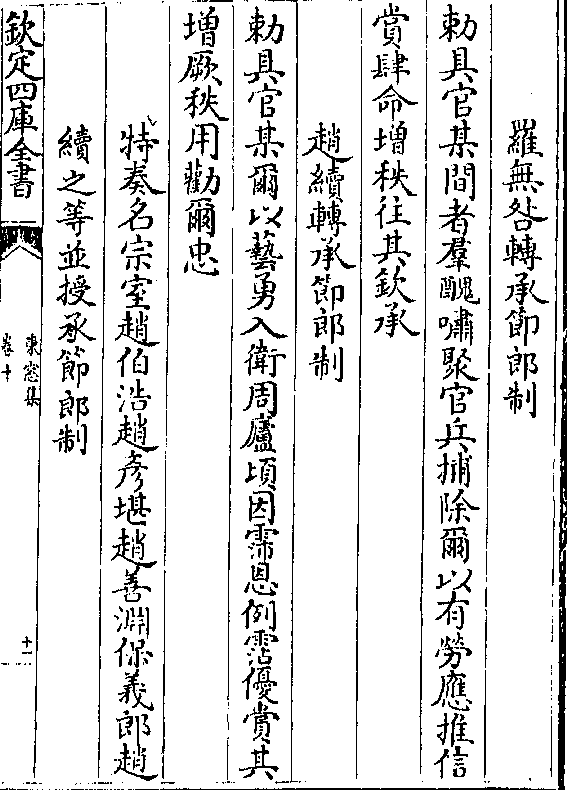 羅無咎轉承節郎制
勅具官某間者羣醜嘯聚官兵捕除爾以有勞應推信
賞肆命增秩往其欽承
趙續轉承節郎制
勅具官某爾以藝勇入衛周廬頃因霈恩例霑優賞其
增厥秩用勸爾忠
特奏名宗室趙伯浩趙彥堪趙善淵保義郎趙
續之等並授承節郎制
欽定四庫全書
東窗集
卷十
十一